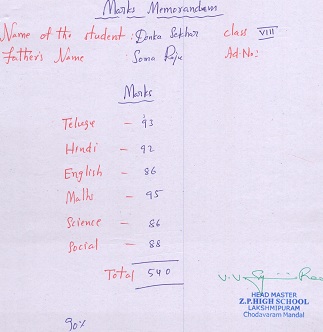 Marks Memorandum
Name of the student : Donka Sekhar class VIII
Father's Name Soma Raju Ad.No:
Marks
Telugu - 93
Hindi - 92
English - 86
Maths - 95
Science - 86
Social - 88
Total 540
V.V.
HEAD MASTER
Z.P.HIGH SCHOOL
LAKSHMIPURAM
Chodavaram Mandal
90%